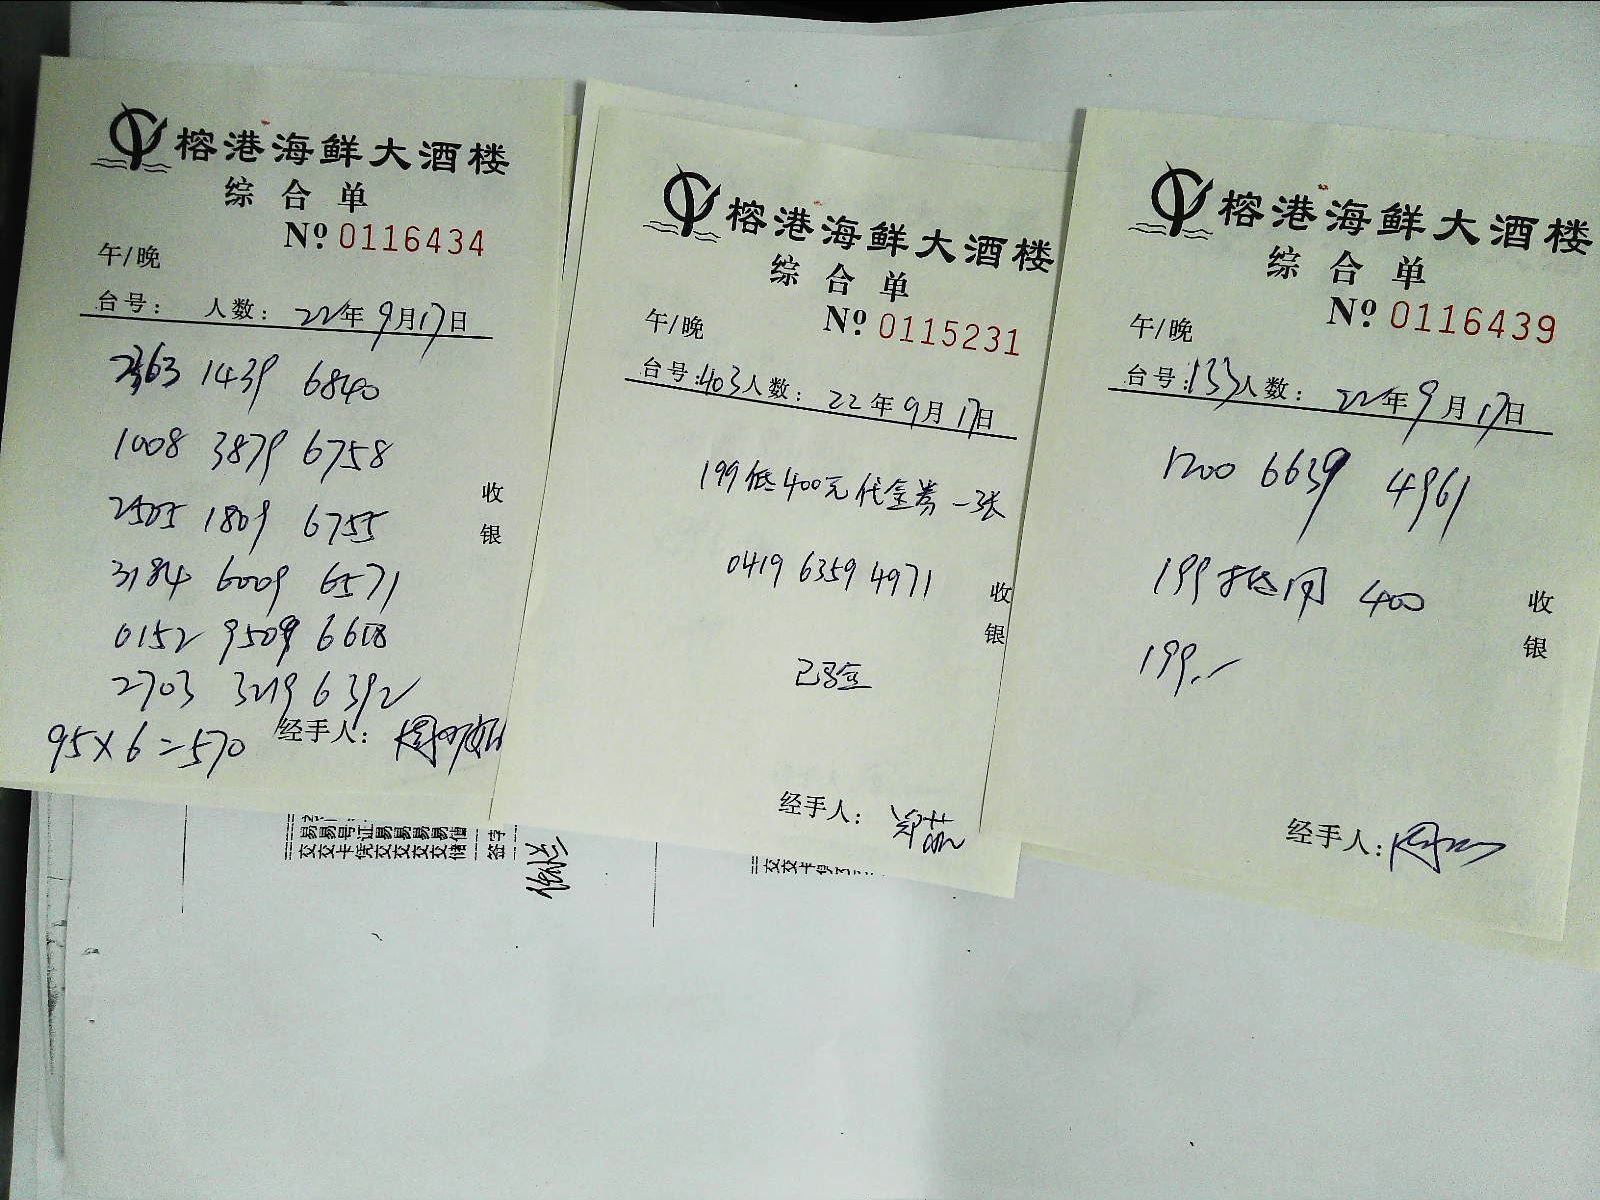 榕港海鲜大酒楼
综合单
Nº 0116434
午/晚
台号: 人数: 22年9月17日
2363 1439 6840
1008 3879 6758
2505 1809 6755
3184 6009 6571
0152 9509 6618
2703 3219 6392
收银
95×6=570
经手人:
榕港海鲜大酒楼
综合单
Nº 0115231
午/晚
台号:403人数: 22年9月17日
199低400元代金券一张
0419 6359 4971
收银
已验
经手人:
榕港海鲜大酒楼
综合单
Nº 0116439
午/晚
台号:133人数: 22年9月17日
1200 6639 4961
199抵用400
收银
199.
经手人: